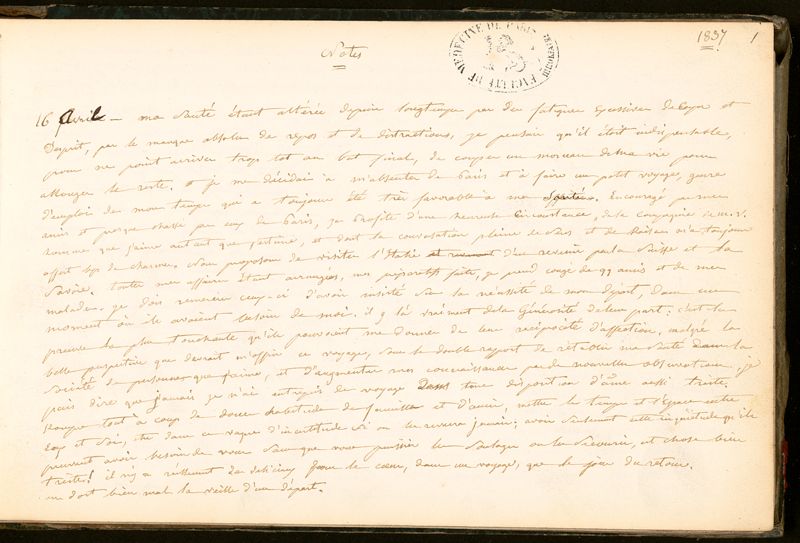 1837 1
Notes
FACULTÉ DE MÉDECINE DE PARIS
16 Avril – ma Santé étant altérée depuis longtemps par des fatigues excessives de corps et
d'esprit, par le manque absolu de repos et de distractions, je pensais qu'il était indispensable,
pour ne point arriver trop tôt au but final, de couper un morceau de ma vie pour
allonger le reste. je me décidai à m'absenter de Paris et à faire un petit voyage, genre
d'emploi de mon temps qui a toujours été très favorable à ma Santé. Encouragé par mes
amis et presque chassé par eux de Paris, je profite d'une heureuse circonstance, de la compagnie de
homme que j'aime autant que j'estime, et dont la conversation pleine de et de raison m'a toujours
offert de charmes. Nous proposons de visiter l'Italie et revenir par la Suisse et la
Savoie. toutes mes affaires étant arrangées, mes préparatifs faits, je prends congé de qq amis et de mes
malades. je dois remercier ceux-ci d'avoir insisté sur la nécessité de mon départ, dans un
moment où ils avaient besoin de moi. il y a là vraiment de la Générosité de leur part: c'est la
preuve la plus touchante qu'ils pouvaient me donner de leur réciprocité d'affection. malgré la
belle perspective que devait m'offrir ce voyage, sous le double rapport de rétablir ma Santé dans la
Société de personnes que j'aime, et d'augmenter mes connaissances par de nouvelles observations, je
puis dire que jamais je n'ai entrepris de voyage dans une disposition d'âme aussi triste.
Rompre tout à coup de douces habitudes de famille et d'amis, mettre le temps et l'Espace entre
Eux et Soi, être dans ce vague d'incertitude si on les reverra jamais; avoir seulement cette inquiétude qu'ils
peuvent avoir besoin de vous sans que vous puissiez les soulager ou les Secourir, est chose bien
triste! il n'y a réellement de délicieux pour le cœur, dans un voyage, que le jour du retour.
on dort bien mal la veille d'un départ.